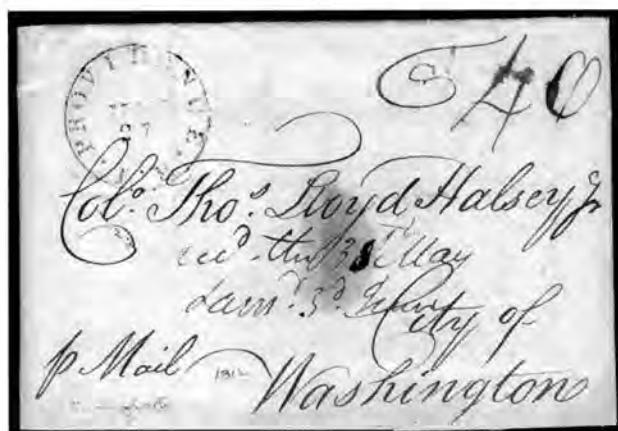 PROVIDENCE.
27
40
Colo. Thos. Lloyd Halsey Jr
recd. the 31st May
City of
p Mail
1812
Washington